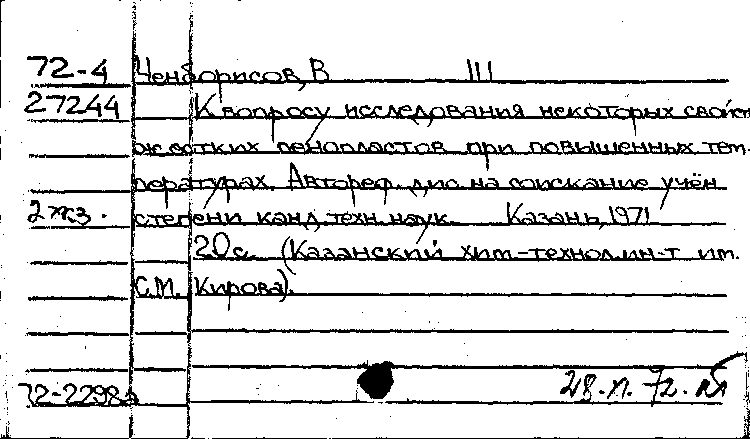 72-4 Ченборисов, В Ш
27244 К вопросу исследования некоторых свойст
жестких пенопластов при повышенных тем-
пературах. Автореф. дис. на соискание учён.
2 экз. степени канд. техн. наук. Казань, 1971
20 с. (Казанский хим-технол. ин-т им.
С.М. Кирова).
72-2298